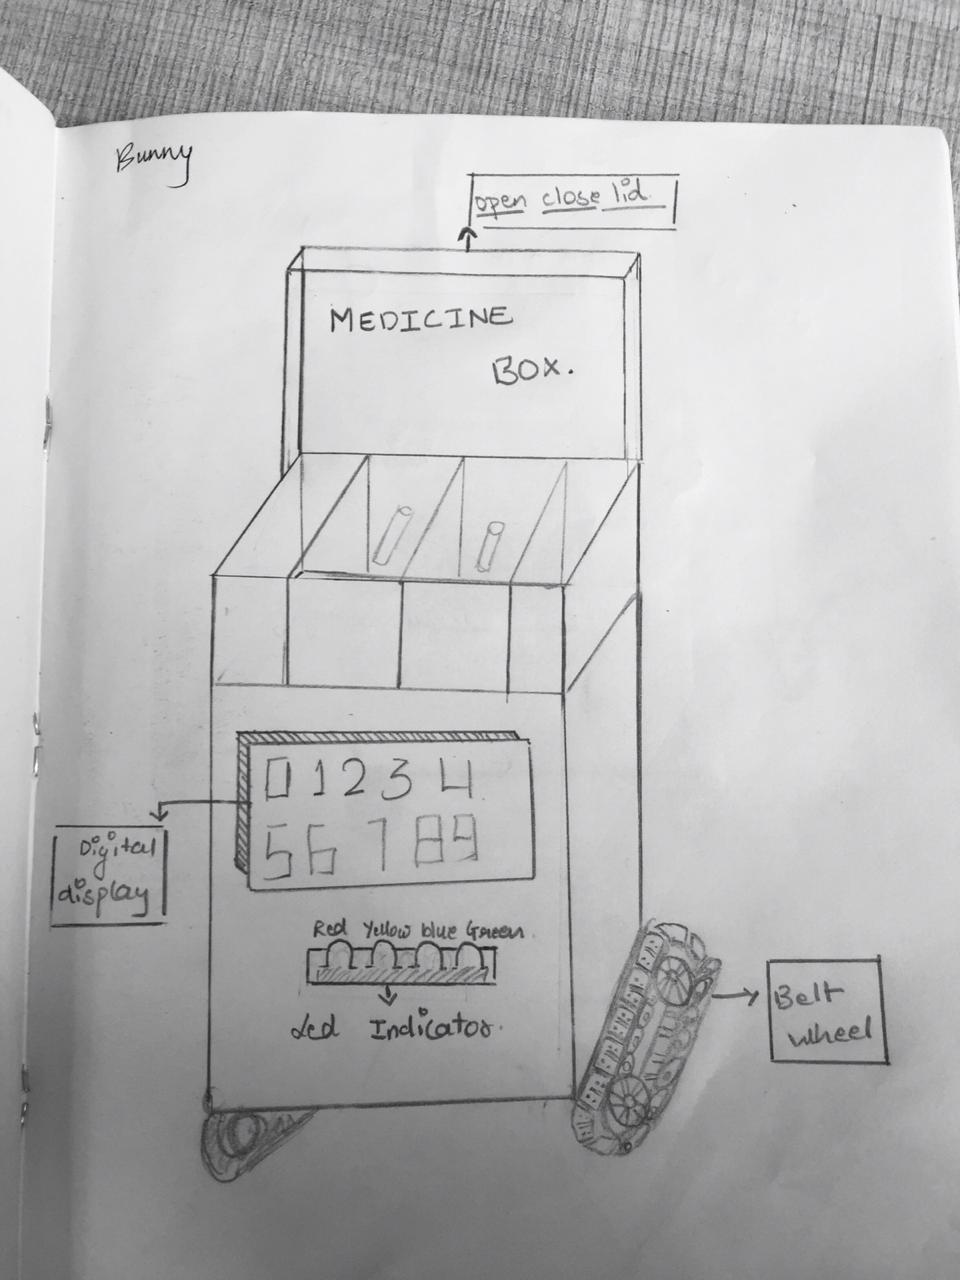 Bunny
open close lid.
MEDICINE
BOX.
0 1 2 3 4
5 6 7 8 9
Digital
display
Red Yellow blue Green.
Led Indicator.
Belt
wheel